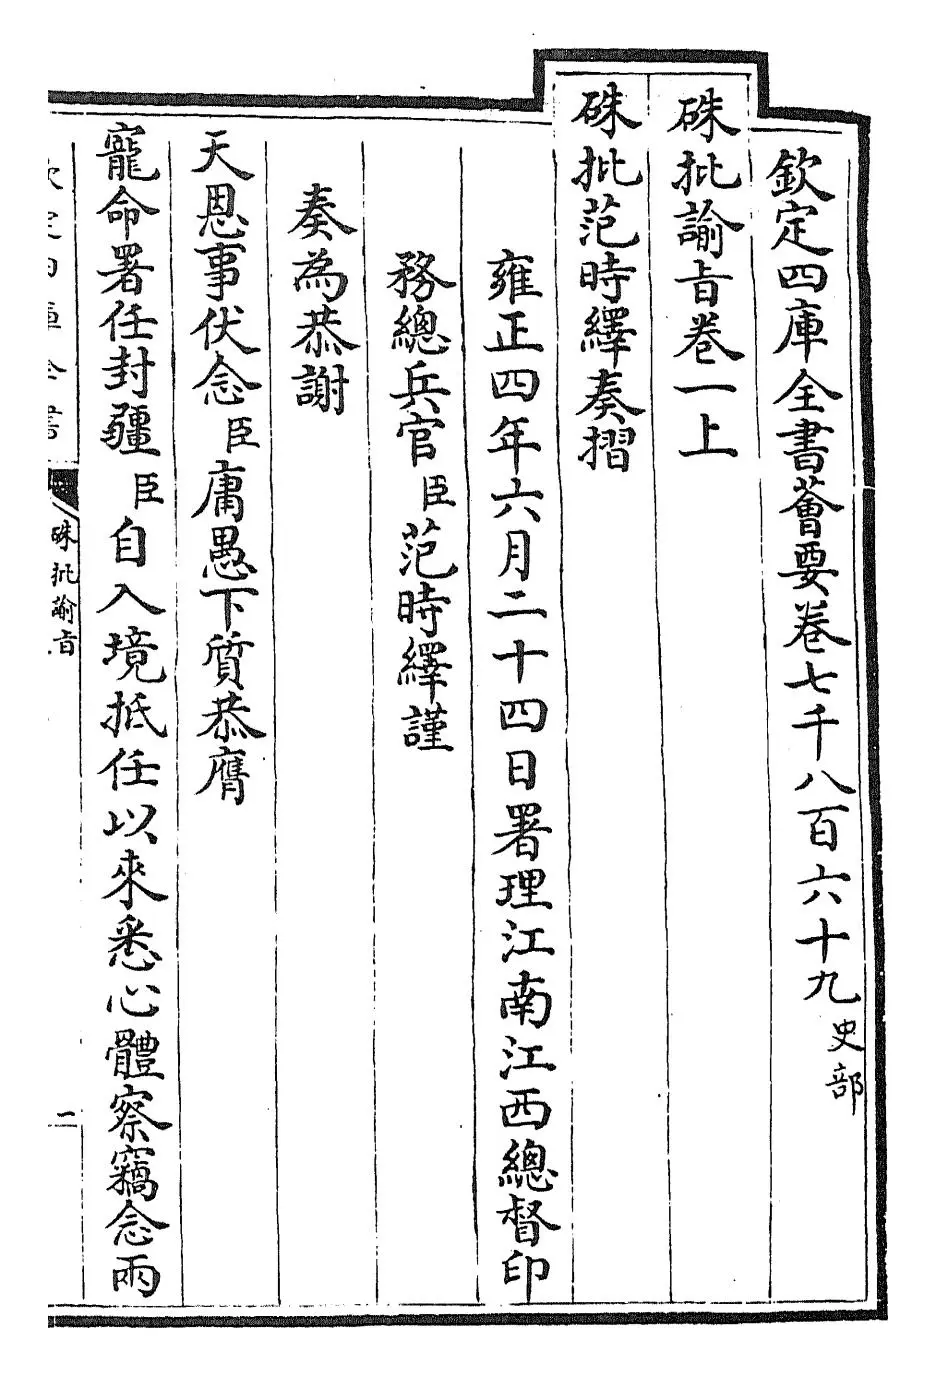 欽定四庫全書薈要卷七千八百六十九史部
硃批諭旨卷一上
硃批范時繹奏摺
雍正四年六月二十四日署理江南江西總督印
務總兵官臣范時繹謹
奏為恭謝
天恩事伏念臣庸愚下質恭膺
寵命署任封疆臣自入境抵任以來悉心體察竊念兩
硃批諭旨
二